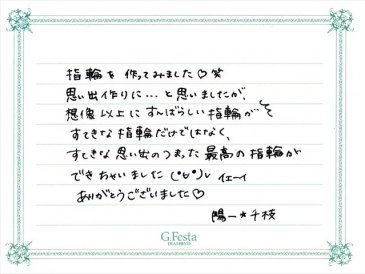 指輪を作ってみました♡笑
思い出作りに…と思いましたが、
想像以上にすんばらしい指輪が
すてきな指輪だけではなく、
すてきな思い出のつまった最高の指輪が
できちゃいました(°∀°)ﾉ イエーイ
ありがとうございました♡
陽一★千枝
G.Festa